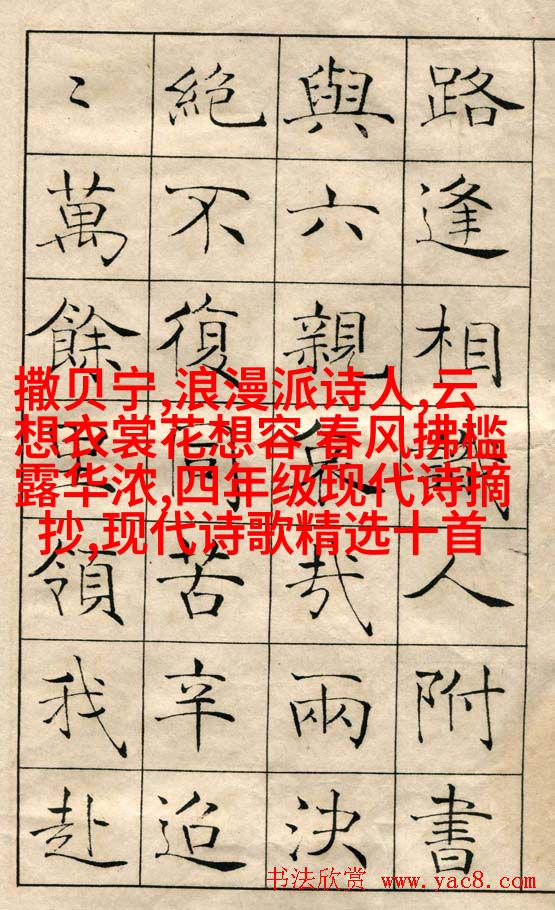 路逢相識人附書
與六親哀哉兩決
絕不復同苦辛迢
〻萬餘里領我赴
撒贝宁,浪漫派诗人,云
想衣裳花想容 春风拂槛
露华浓,四年级现代诗摘
抄,现代诗歌精选十首
书法欣赏 www.yac8.com